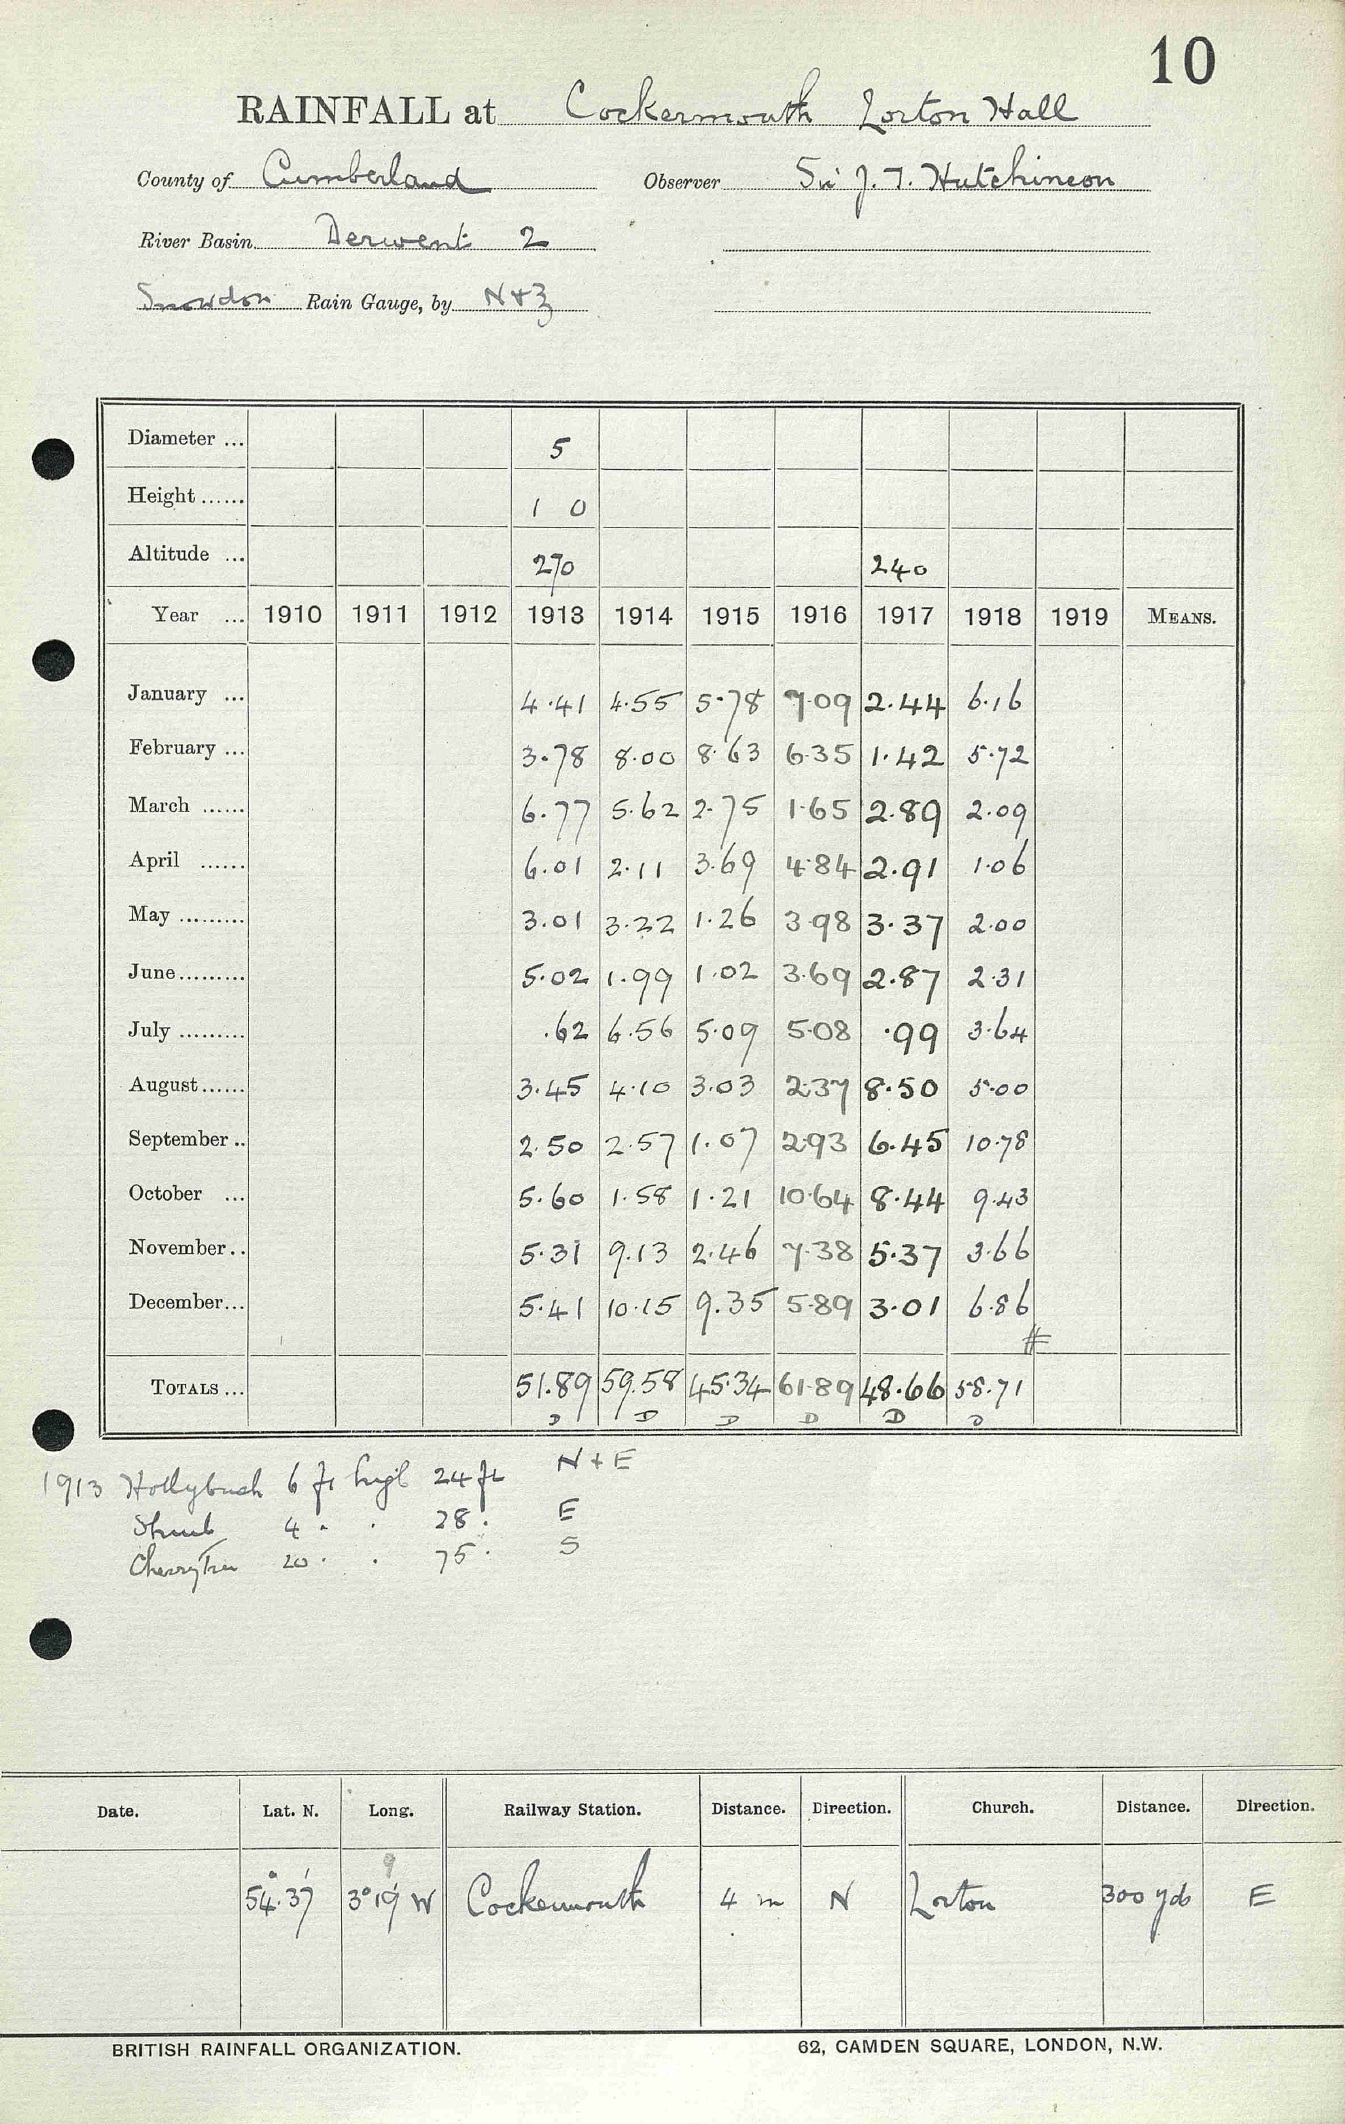 10
RAINFALL at Cockermouth Lorton Hall
County of Cumberland Observer Sir J. T. Hutchinson
River Basin Derwent 2
Snowdon Rain Gauge, by N & Z
Diameter ... 5
Height ...... 1 0
Altitude ... 270 240
Year ... 1910 1911 1912 1913 1914 1915 1916 1917 1918 1919 MEANS.
January ... 4.41 4.55 5.78 7.09 2.44 6.16
February ... 3.78 8.00 8.63 6.35 1.42 5.72
March ...... 6.77 5.62 2.75 1.65 2.89 2.09
April ...... 6.01 2.11 3.69 4.84 2.91 1.06
May ......... 3.01 3.22 1.26 3.98 3.37 2.00
June......... 5.02 1.99 1.02 3.69 2.87 2.31
July ......... .62 6.56 5.09 5.08 .99 3.64
August...... 3.45 4.10 3.03 2.37 8.50 5.00
September .. 2.50 2.57 1.07 2.93 6.45 10.78
October ... 5.60 1.58 1.21 10.64 8.44 9.43
November.. 5.31 9.13 2.46 7.38 5.37 3.66
December... 5.41 10.15 9.35 5.89 3.01 6.86
#
TOTALS ... 51.89 59.58 45.34 61.89 48.66 58.71
D D D D D D
1913 Hollybush 6 ft high 24 ft N + E
Shrub 4 " " 28 " E
Cherry Tree 20 " " 75 " S
Date. Lat. N. Long. Railway Station. Distance. Direction. Church. Distance. Direction.
9
54° 37' 3° 19' W Cockermouth 4 m N Lorton 300 yds E
BRITISH RAINFALL ORGANIZATION. 62, CAMDEN SQUARE, LONDON, N.W.